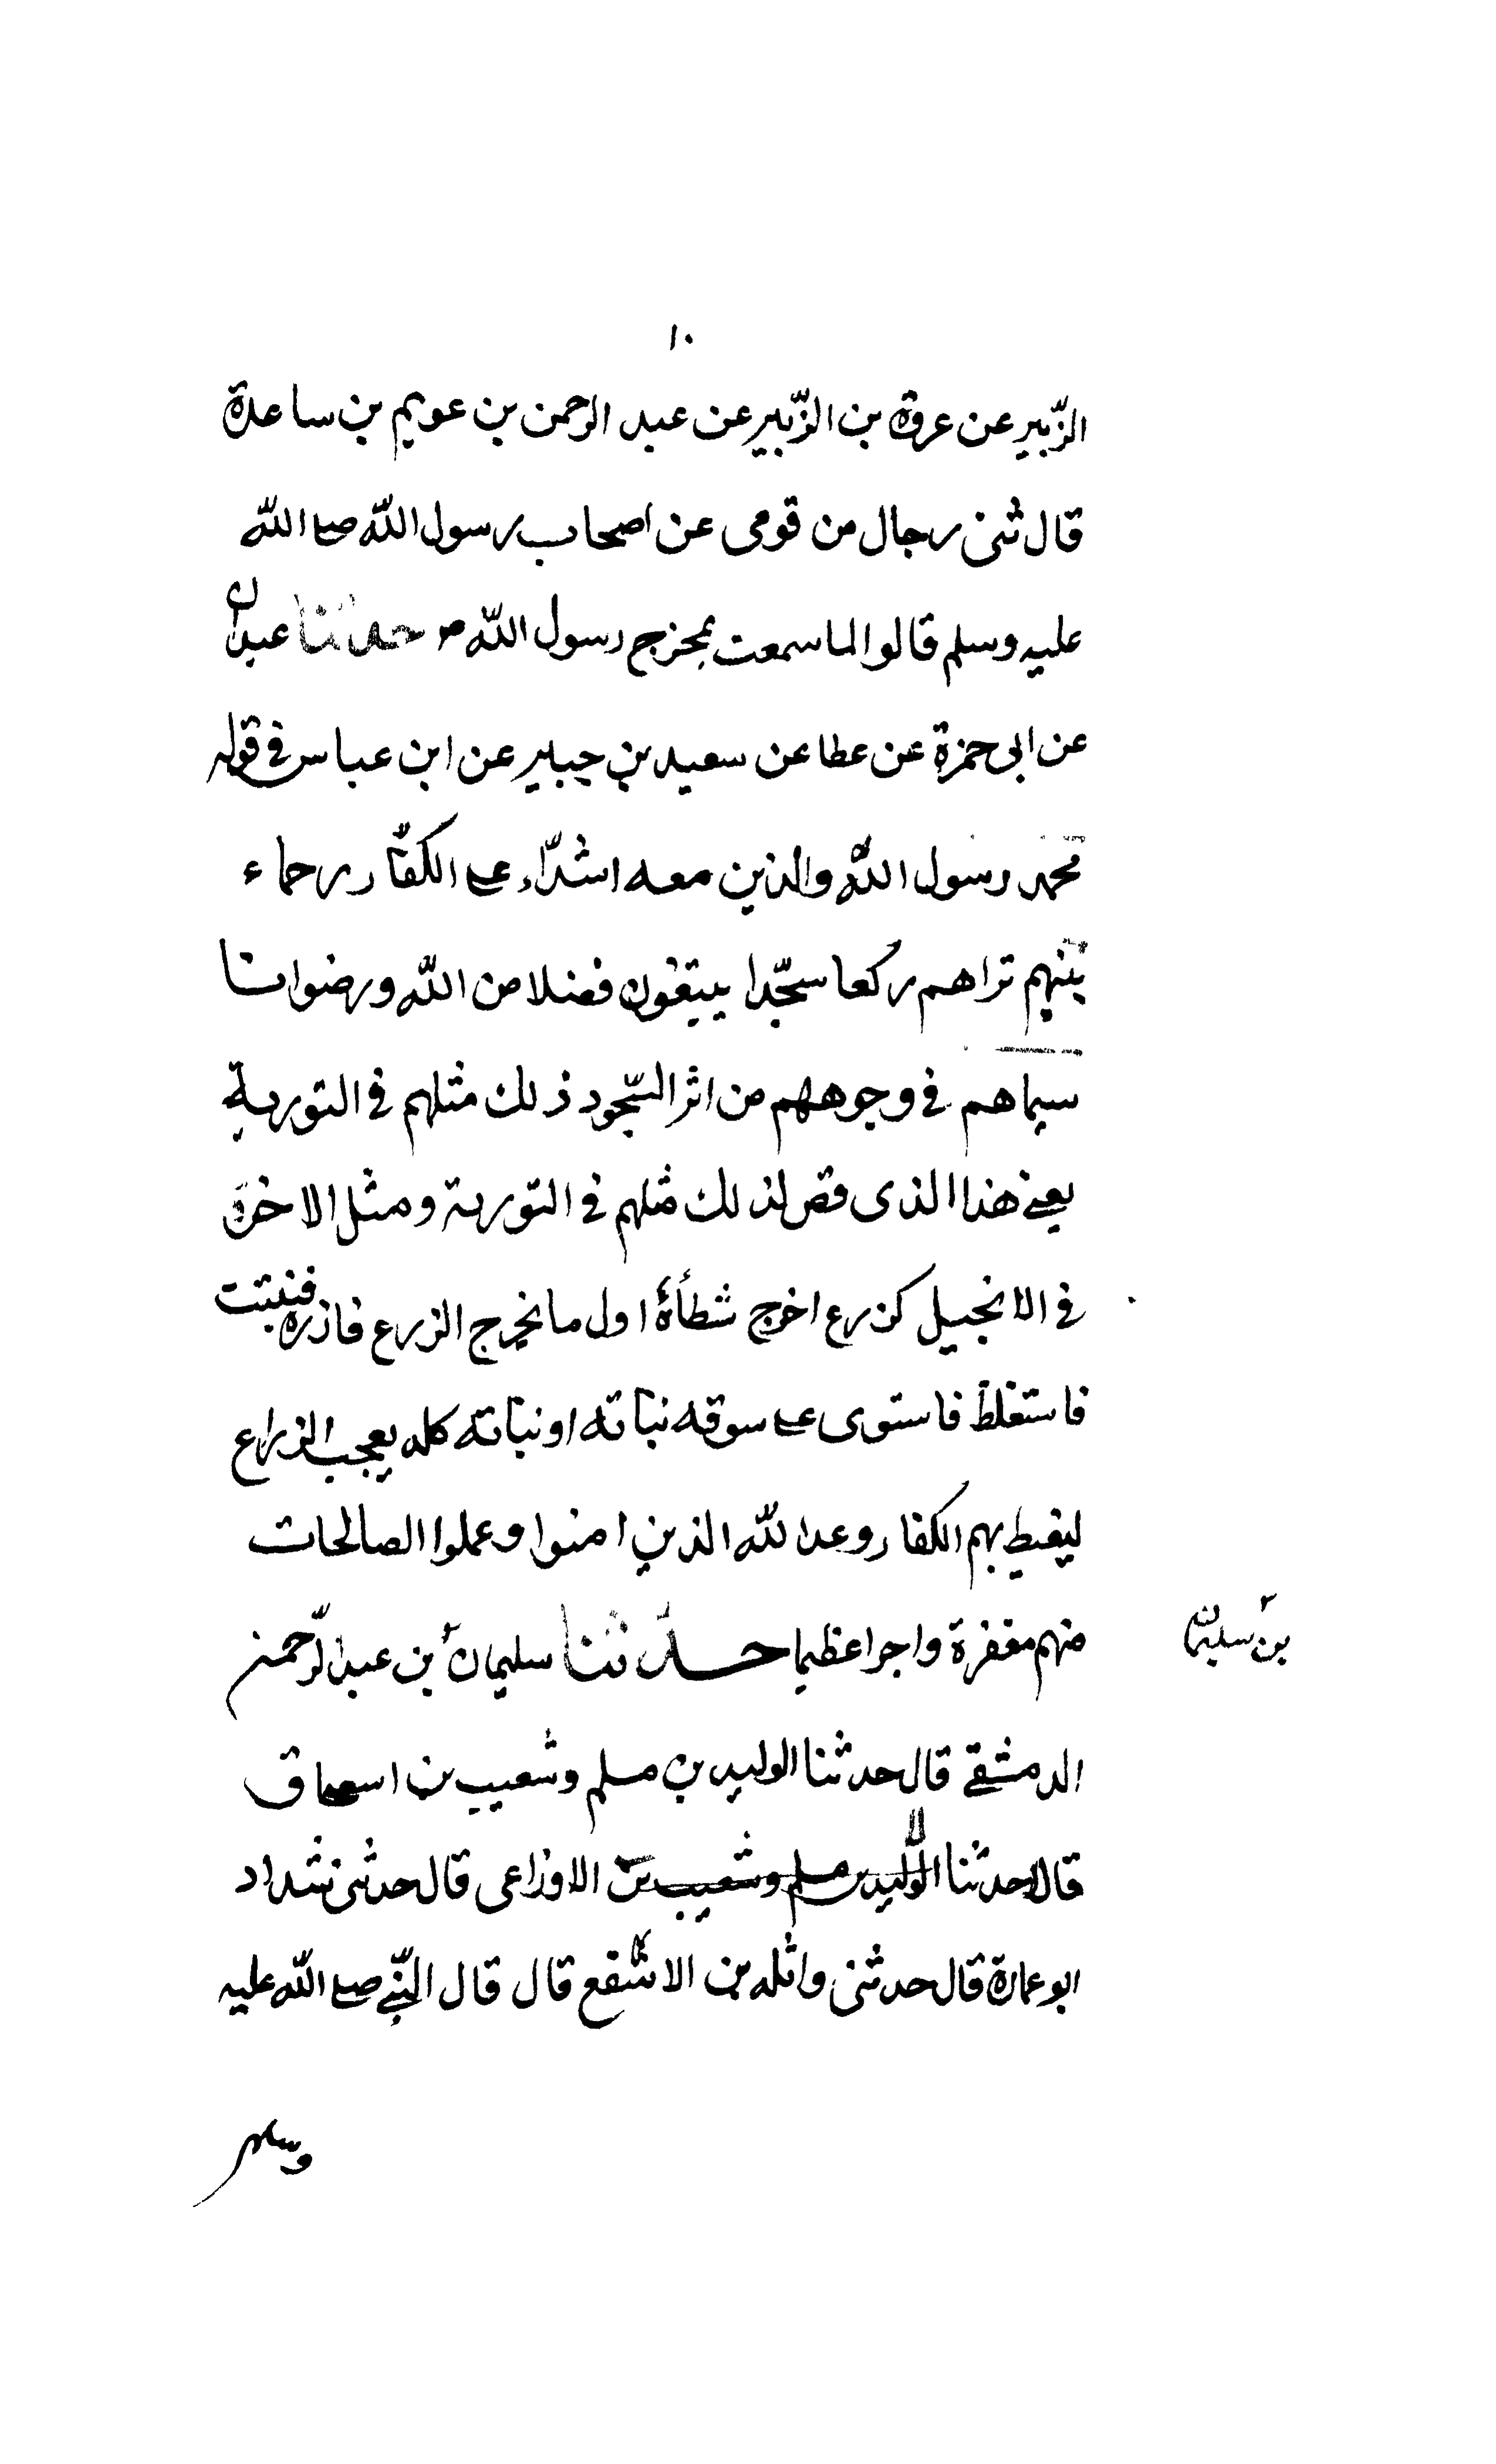 ١٠
الزّبير عن عروة بن الزّبير عن عبد الرحمن بن عويم بن ساعدة
قال ثنى رجال من قومى عن اصحاب رسول الله صلى الله
عليه وسلم قالوا لما سمعت بمخرج رسول الله ص حدثنا عبدان
عن ابى حمزة عن عطا عن سعيد بن جبير عن ابن عباس فى قوله
محمد رسول الله والذين معه اشدّاء على الكفّار رحماء
بينهم تراهم ركعا سجّدا يبتغون فضلا من الله ورضوانا
سيماهم فى وجوههم من اثر السّجود ذلك مثلهم فى التورية
يعنى هذا الذى قص لذلك مثلهم فى التورية ومثل الاخرة
فى الانجيل كزرع اخرج شطأهٔ اول ما يخرج الزرع فازره فنبتت
فاستغلظ فاستوى على سوقه نباته او نباته كله يعجب الزراع
ليغيظ بهم الكفار وعد الله الذين امنوا وعملوا الصالحات
منهم مغفرة واجرا عظيما حدثنا سليمان بن عبد الرّحمن
بن سليمان
الدمشقى قال حدثنا الوليد بن مسلم وشعيب بن اسحاق
قالا حدثنا الوليد بن مسلم وشعيب بن الاوزاعى قال حدثنى شداد
ابو عمارة قال حدثنى واثله بن الاسقع قال قال النّبى صلى الله عليه
وسلم